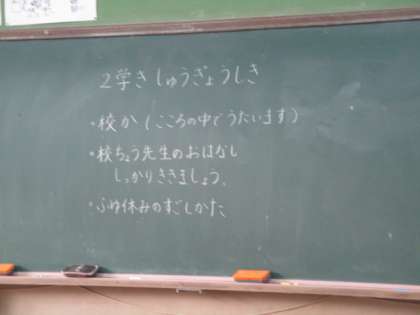 2学き しゅうぎょうしき
・校か(こころの中でうたいます)
・校ちょう先生のおはなし
しっかりききましょう。
・ふゆ休みのすごしかた